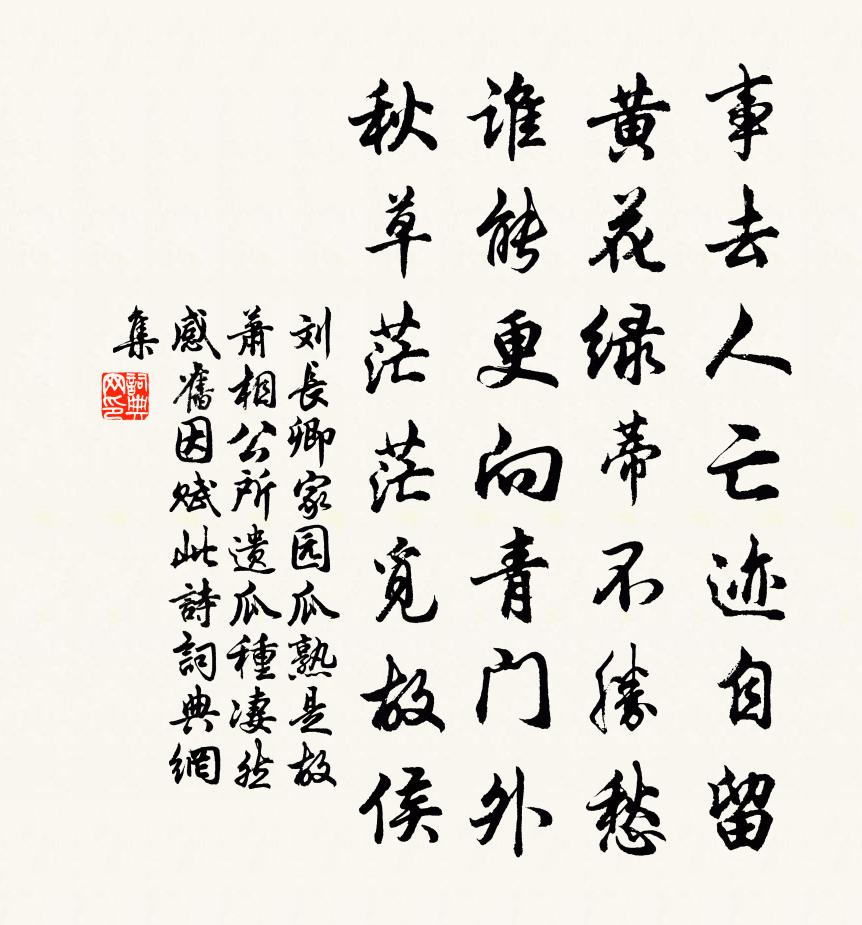 事去人亡迹自留
黄花绿蒂不勝愁
谁能更向青门外
秋草茫茫觅故侯
刘長卿家园瓜熟是故
萧相公所遗瓜種凄然
感舊因赋此詩詞典網
集
詞典网印